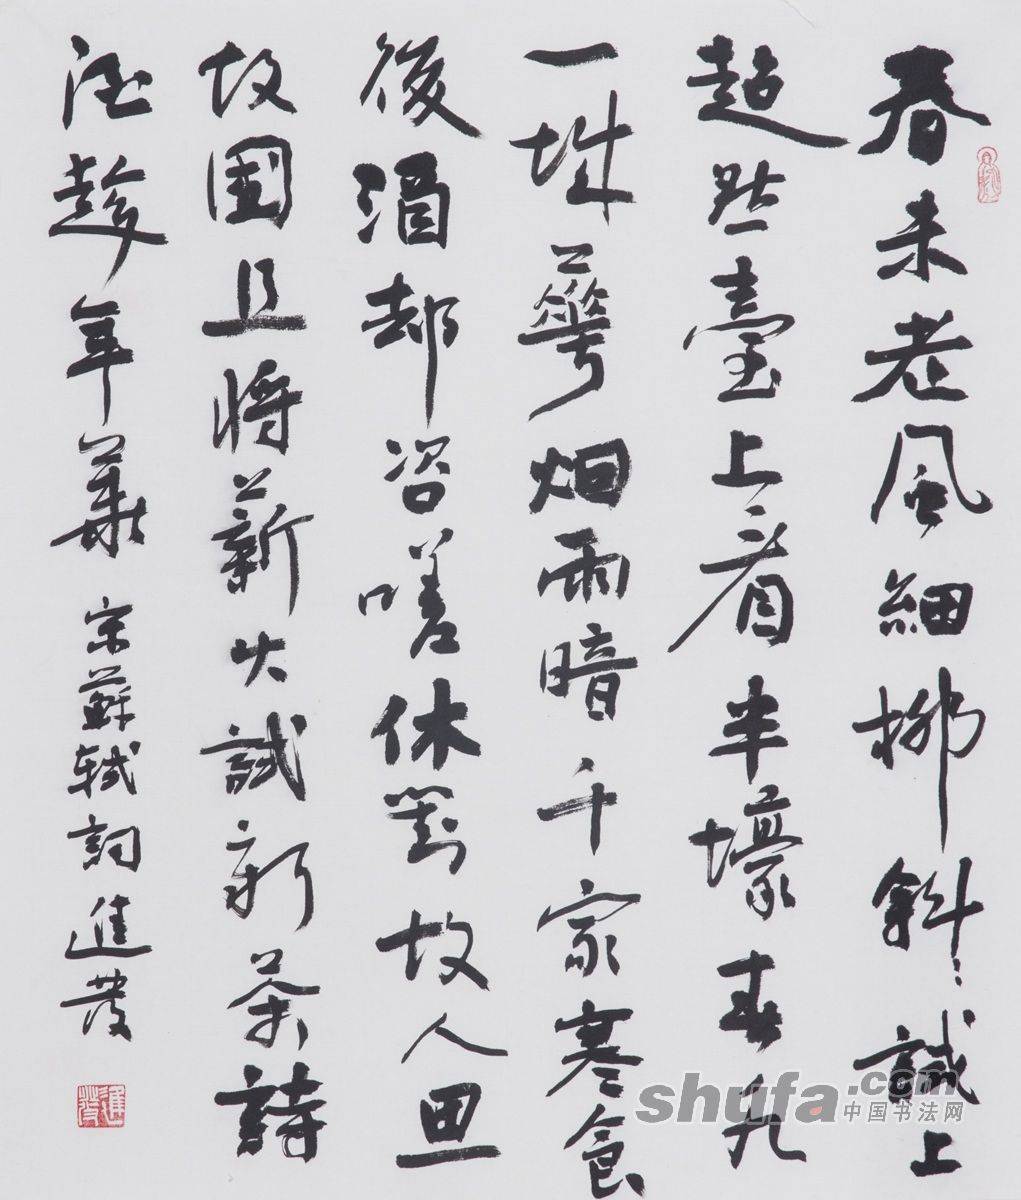 春未老風細柳斜〻試上
超然臺上看半壕春水
一城華烟雨暗千家寒食
後酒却咨嗟休對故人思
故國且將薪火試新茶詩
酒趁年華 宋蘇軾詞進發
進發
shufa.com
中国书法网